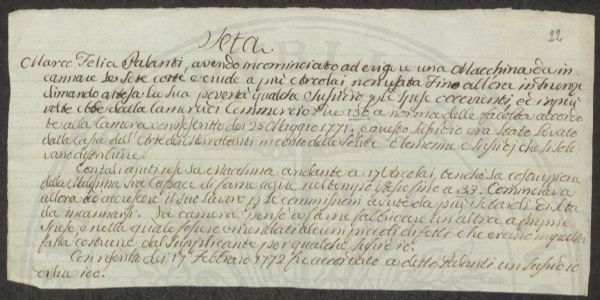 22
Seta
Marco Felice Palanti, avendo incominciato ad erigere una Macchina da in-
cannare le Sete cotte e crude a più circolai non usata fino allora in Firenze
dimandò attesa la sua povertà qualche sussidio per spese occorrenti, ed in più
volte ebbe dalla Camera di Commercio Lire 136 a norma delle facoltà accorda
te alla Camera con rescritto dei 25 Maggio 1771. e questo sussidio era stato levato
dalla Cassa dell'Arte dei Mercatanti in conto delle Solite Elemosine e sussidj che si sole-
vano distribuire.
Con tali ajuti rese la Macchina andante a 17 circolai, benchè la costruzione
della Medesima sia capace di farne agire nel tempo stesso fino a 33. Cominciava
allora ad accrescere il suo lavoro per le commissioni avute da più Setaioli di Seta
da incannarsi. La camera pensò a farne fabbricare un altra a proprie
spese e nella quale fossero emendati alcuni piccoli difetti che erano in quella
fatta costruire dal supplicante per qualche sussidio.
Con rescritto dei 17 Febbraio 1772 fu accordato a detto Palanti un sussidio
di lire 100.